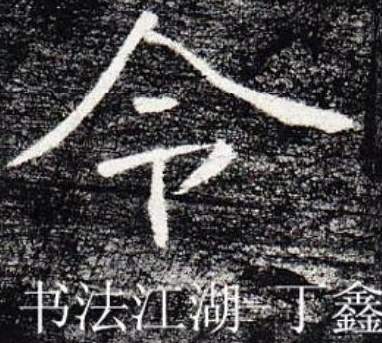 令
书法江湖-丁鑫